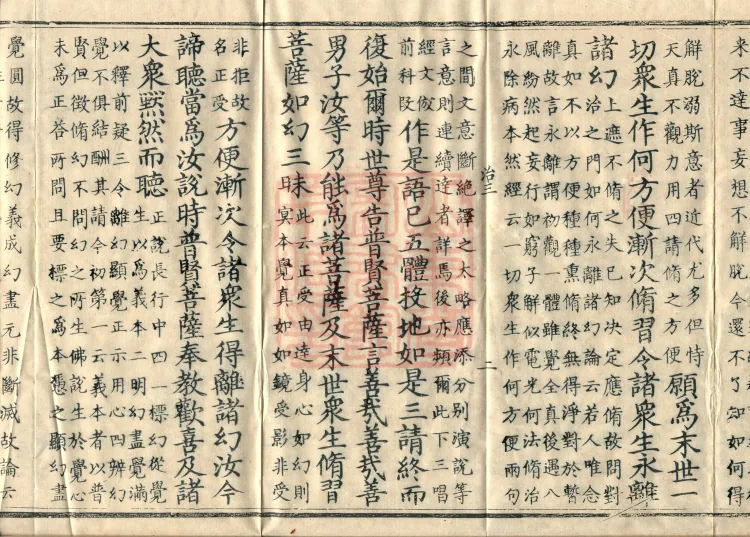 來不達事妄想不解脫令還不了知如何得
解脫溺斯意者近代尤多但恃
天真不觀力用四請脩之方便
願為末世一
切衆生作何方便漸次脩習令諸衆生永離
諸幻
上遮不脩之失已知決定應脩故問對
治之門如何永離諸幻論云若人唯念
真如不以方便種種熏脩終無得淨對於暫
離故言永離謂初觀一體雖覺全真後遇八
風紛然起妄行如窮子解似電光何法脩治
永除病本然經云一切衆生作何方便兩句
治三 二
之間文意斷絕譯之太略應添分別演說等
言意則連續達者詳焉後亦頻爾此下三唱
經文倣
前科段
作是語已五體投地如是三請終而
復始爾時世尊告普賢菩薩言善哉善哉善
男子汝等乃能為諸菩薩及末世衆生脩習
菩薩如幻三昧
此云正受由達身心如幻則
冥本覺真如如鏡受影非受
非拒故
名正受
方便漸次令諸衆生得離諸幻汝今
諦聽當為汝說時普賢菩薩奉教歡喜及諸
大衆默然而聽
正說長行中四一標幻從覺
生以為義本二明幻盡覺滿
以釋前疑三令離幻顯覺正示用心四辨幻
覺不俱結酬其請今初第一云義本者以普
賢但徵脩幻不問幻之所生佛說生於覺心
未為正荅所問且要標之為本憑之顯幻盡
覺圓故得修幻義成幻盡元非斷滅故論云